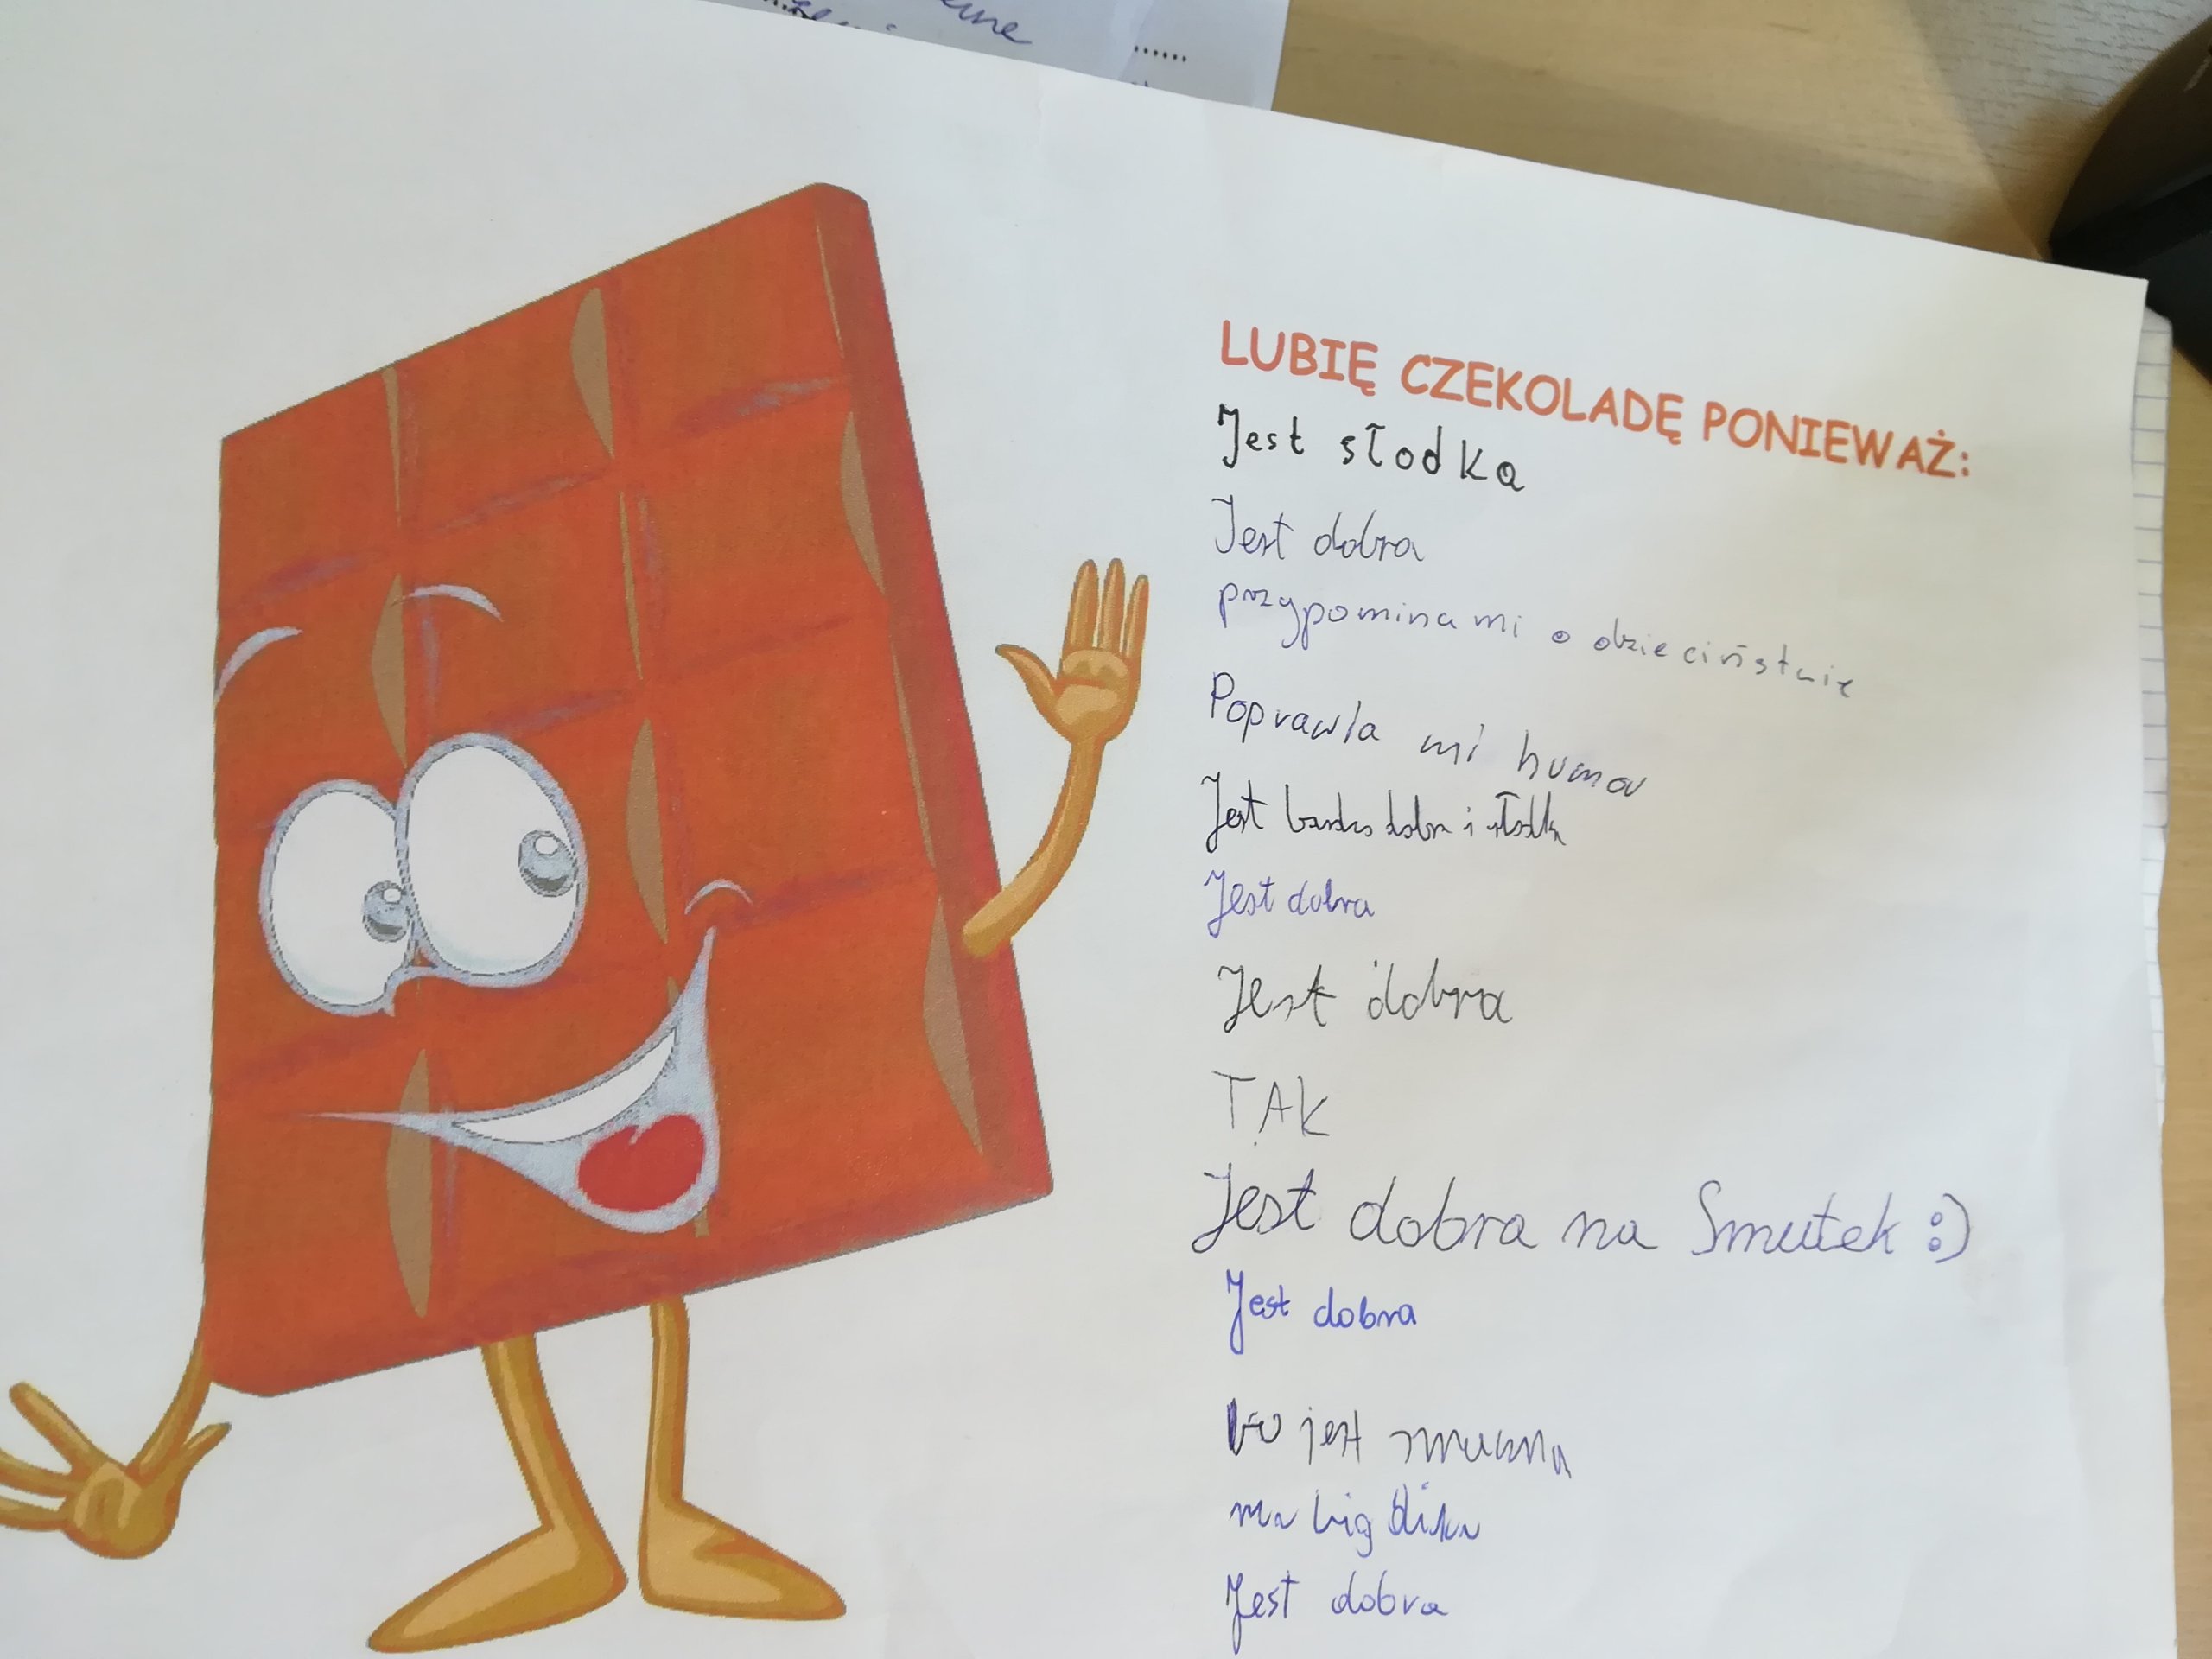 LUBIĘ CZEKOLADĘ PONIEWAŻ:
Jest słodka
Jest dobra
przypomina mi o dzieciństwie
Poprawia mi humor
Jest bardzo dobra i słodka
Jest dobra
Jest dobra
TAK
Jest dobra na Smutek :)
Jest dobra
bo jest smaczna
ma big dika
Jest dobra